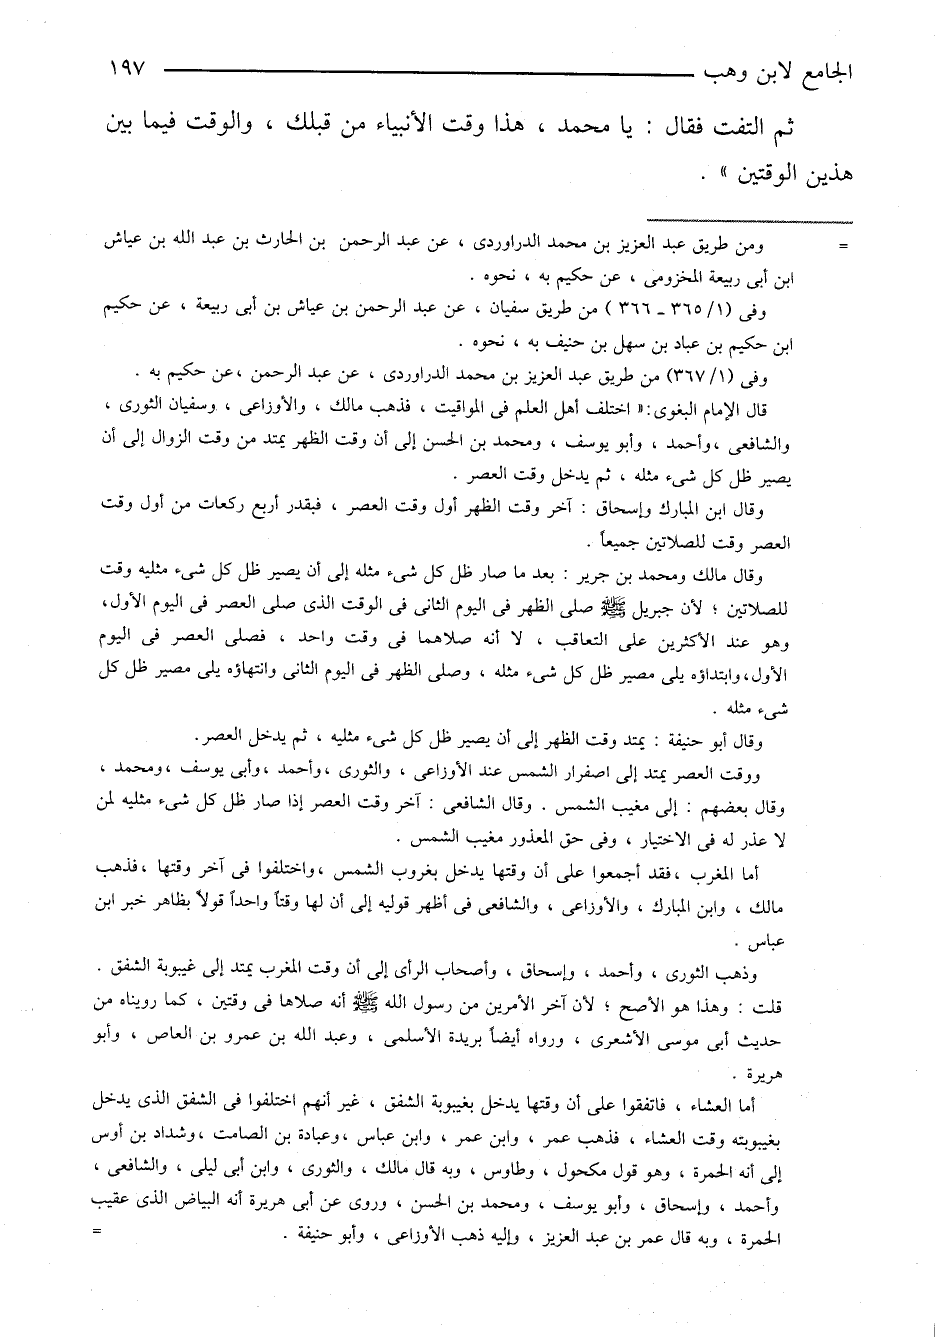 الجامع لابن وهب ١٩٧
ثم التفت فقال : يا محمد ، هذا وقت الأنبياء من قبلك ، والوقت فيما بين
هذين الوقتين » .
= ومن طريق عبد العزيز بن محمد الدراوردى ، عن عبد الرحمن بن الحارث بن عبد الله بن عياش
ابن أبى ربيعة المخزومى ، عن حكيم به ، نحوه .
وفى (١/ ٣٦٥ ـ ٣٦٦ ) من طريق سفيان ، عن عبد الرحمن بن عياش بن أبى ربيعة ، عن حكيم
ابن حكيم بن عباد بن سهل بن حنيف به ، نحوه .
وفى (١/ ٣٦٧) من طريق عبد العزيز بن محمد الدراوردى ، عن عبد الرحمن ،عن حكيم به .
قال الإمام البغوى:« اختلف أهل العلم فى المواقيت ، فذهب مالك ، والأوزاعى ، وسفيان الثورى ،
والشافعى ،وأحمد ، وأبو يوسف ، ومحمد بن الحسن إلى أن وقت الظهر يمتد من وقت الزوال إلى أن
يصير ظل كل شىء مثله ، ثم يدخل وقت العصر .
وقال ابن المبارك وإسحاق : آخر وقت الظهر أول وقت العصر ، فبقدر أربع ركعات من أول وقت
العصر وقت للصلاتين جميعاً .
وقال مالك ومحمد بن جرير : بعد ما صار ظل كل شىء مثله إلى أن يصير ظل كل شىء مثليه وقت
للصلاتين ؛ لأن جبريل ﷺ صلى الظهر فى اليوم الثانى فى الوقت الذى صلى العصر فى اليوم الأول،
وهو عند الأكثرين على التعاقب ، لا أنه صلاهما فى وقت واحد ، فصلى العصر فى اليوم
الأول،وابتداؤه يلى مصير ظل كل شىء مثله ، وصلى الظهر فى اليوم الثانى وانتهاؤه يلى مصير ظل كل
شىء مثله .
وقال أبو حنيفة : يمتد وقت الظهر إلى أن يصير ظل كل شىء مثليه ، ثم يدخل العصر.
ووقت العصر يمتد إلى اصفرار الشمس عند الأوزاعى ، والثورى ،وأحمد ،وأبى يوسف ،ومحمد ،
وقال بعضهم : إلى مغيب الشمس . وقال الشافعى : آخر وقت العصر إذا صار ظل كل شىء مثليه لمن
لا عذر له فى الاختيار ، وفى حق المعذور مغيب الشمس .
أما المغرب ،فقد أجمعوا على أن وقتها يدخل بغروب الشمس ،واختلفوا فى آخر وقتها ،فذهب
مالك ، وابن المبارك ، والأوزاعى ، والشافعى فى أظهر قوليه إلى أن لها وقتاً واحداً قولاً بظاهر خبر ابن
عباس .
وذهب الثورى ، وأحمد ، وإسحاق ، وأصحاب الرأى إلى أن وقت المغرب يمتد إلى غيبوبة الشفق .
قلت : وهذا هو الأصح ؛ لأن آخر الأمرين من رسول الله ﷺ أنه صلاها فى وقتين ، كما رويناه من
حديث أبى موسى الأشعرى ، ورواه أيضاً بريدة الأسلمى ، وعبد الله بن عمرو بن العاص ، وأبو
هريرة .
أما العشاء ، فاتفقوا على أن وقتها يدخل بغيبوبة الشفق ، غير أنهم اختلفوا فى الشفق الذى يدخل
بغيبوبته وقت العشاء ، فذهب عمر ، وابن عمر ، وابن عباس ،وعبادة بن الصامت ،وشداد بن أوس
إلى أنه الحمرة ، وهو قول مكحول ، وطاوس ، وبه قال مالك ، والثورى ، وابن أبى ليلى ، والشافعى ،
وأحمد ، وإسحاق ، وأبو يوسف ، ومحمد بن الحسن ، وروى عن أبى هريرة أنه البياض الذى عقيب
الحمرة ، وبه قال عمر بن عبد العزيز ، وإليه ذهب الأوزاعى ، وأبو حنيفة . =